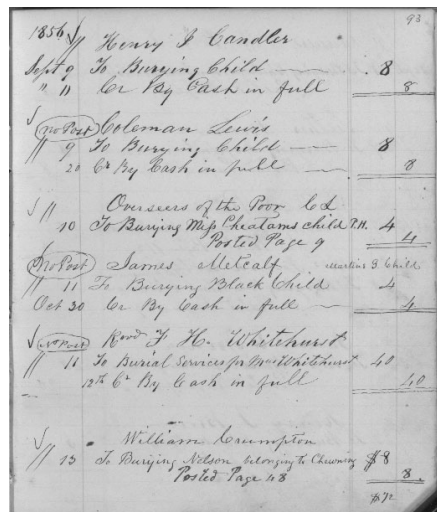 93
1856 √ // Henry J Candler
Sept 9 To Burying Child — 8
" 11 Cr By Cash in full 8
√ (No Post) Coleman Lewis
// 9 To Burying Child — 8
20 Cr By Cash in full — 8
√ // Overseers of the Poor
10 To Burying Miss Cheatams child P.H. 4
Posted Page 9 4
(No Post) James Metcalf Child
// 11 To Burying Black Child 4
Oct 30 Cr By Cash in full — 4
√ (No Post) F H. Whitehurst
// 11 To Burial Services for Mrs Whitehurst 40
12th Cr By Cash in full 40
√ William Crumpton
// 13 To Burying Nelson belonging to $8
Posted Page 48 8
$72